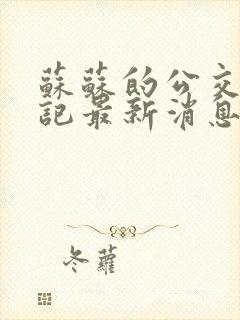 蘇蘇的公交
記最新消息
冬蘿